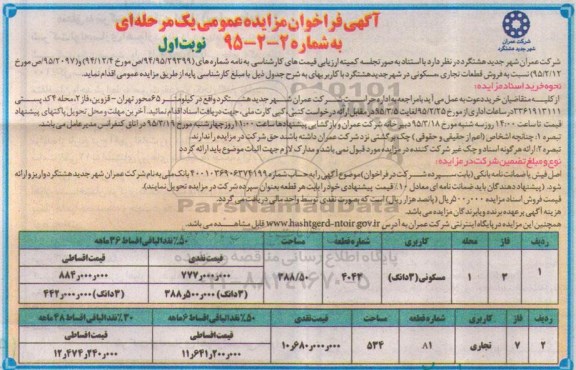 آگهی فراخوان مزایده عمومی یک مرحله‌ای
به شماره ۲-۲-۹۵ نوبت اول
شرکت عمران
شهر جدید هشتگرد
شرکت عمران شهر جدید هشتگرد در نظر دارد با استناد به صورتجلسه کمیته ارزیابی قیمت های کارشناسی به نامه شماره های (۹۴/۹۵/۲۹۳۹۹/ص مورخ ۹۴/۱۲/۴) و (۹۵/۲۰۹۷/ص مورخ
۹۵/۲/۱۲) نسبت به فروش قطعات تجاری، مسکونی در شهر جدید هشتگرد با کاربریهای به شرح جدول ذیل با مبلغ کارشناسی پایه از طریق مزایده عمومی اقدام نماید.
نحوه خرید اسناد مزایده:
از کلیه متقاضیان خرید دعوت به عمل می آید با مراجعه به اداره
شرکت عمران شهر جدید هشتگرد واقع در کیلومتر ۶۵ محور تهران - قزوین، فاز ۲، محله ۴ کد پستی
۳۳۶۱۹۱۳۱۱۱ در ساعات اداری از مورخ ۹۵/۲/۲۵ لغایت ۹۵/۳/۵ در مقابل ارائه درخواست کتبی، کپی کارت ملی، جهت دریافت اسناد اقدام نمایند. آخرین مهلت و محل تحویل پاکتهای پیشنهاد
قیمت تا ساعت ۱۴:۰۰ روز سه شنبه مورخ ۹۵/۳/۱۸ دبیرخانه شرکت عمران و بازگشایی پیشنهادها ساعت ۱۱:۰۰ روز چهارشنبه مورخ ۹۵/۳/۱۹ در اتاق کنفرانس مدیر عامل می باشد.
تبصره ۱: چنانچه اشخاص (اعم از حقیقی و حقوقی) چک برگشتی نزد شرکت عمران داشته باشند حق شرکت در مزایده را ندارند.
تبصره ۲: ارائه هر گونه اسناد و چک غیر شرکت کننده در مزایده مورد قبول نمی باشد و مدارک لازم جهت اثبات موضوع باید ارائه گردد
نوع و مبلغ تضمین شرکت در مزایده:
اصل فیش یا ضمانت نامه بانکی (بابت سپرده شرکت در فراخوان) موضوع آگهی را به حساب شماره ۴۰۰۱۰۲۶۹۰۶۳۷۴۱۹۹ بانک ملی به نام شرکت عمران شهر جدید هشتگرد واریز و ارائه
شود. (پیشنهاد دهندگان باید ضمانت نامه ای معادل ۱۰٪ قیمت پیشنهادی خود را بابت هر قطعه بعنوان سپرده شرکت در مزایده تحویل نمایند).
قیمت فروش اسناد مزایده ۵۰۰٫۰۰۰ ریال (پانصد هزار ریال) است که بصورت نقدی توسط واحد مالی دریافت می گردد.
هزینه آگهی بر عهده برنده و یا برندگان مزایده می باشد.
همچنین این مزایده در پایگاه اینترنتی شرکت عمران به آدرس www.hashtgerd-ntoir.gov.ir قابل مشاهده می باشد.
ParsNamadData
پایگاه اطلاع رسانی مناقصه و مزایده
ردیف فاز محله کاربری شماره قطعه مساحت ۵۰٪ نقد الباقی اقساط ۳۶ ماهه
قیمت نقدی قیمت اقساطی
۱ ۳ ۱ مسکونی (۳ دانگ) ۴۰۴۳ ۳۸۸/۵۰ ۷۷۷٫۰۰۰٫۰۰۰ ۸۸۴٫۰۰۰٫۰۰۰
(۳ دانگ) ۳۸۸٫۵۰۰٫۰۰۰ (۳ دانگ) ۴۴۲٫۰۰۰٫۰۰۰
ردیف فاز کاربری شماره قطعه مساحت قیمت نقدی ۵۰٪ نقد الباقی اقساط ۶ ماهه ۳۰٪ نقد الباقی اقساط ۴۸ ماهه
قیمت اقساطی قیمت اقساطی
۲ ۷ تجاری ۸۱ ۵۳۴ ۱۰٫۶۸۰٫۰۰۰٫۰۰۰ ۱۱٫۶۴۱٫۲۰۰٫۰۰۰ ۱۲٫۴۷۴٫۲۴۰٫۰۰۰